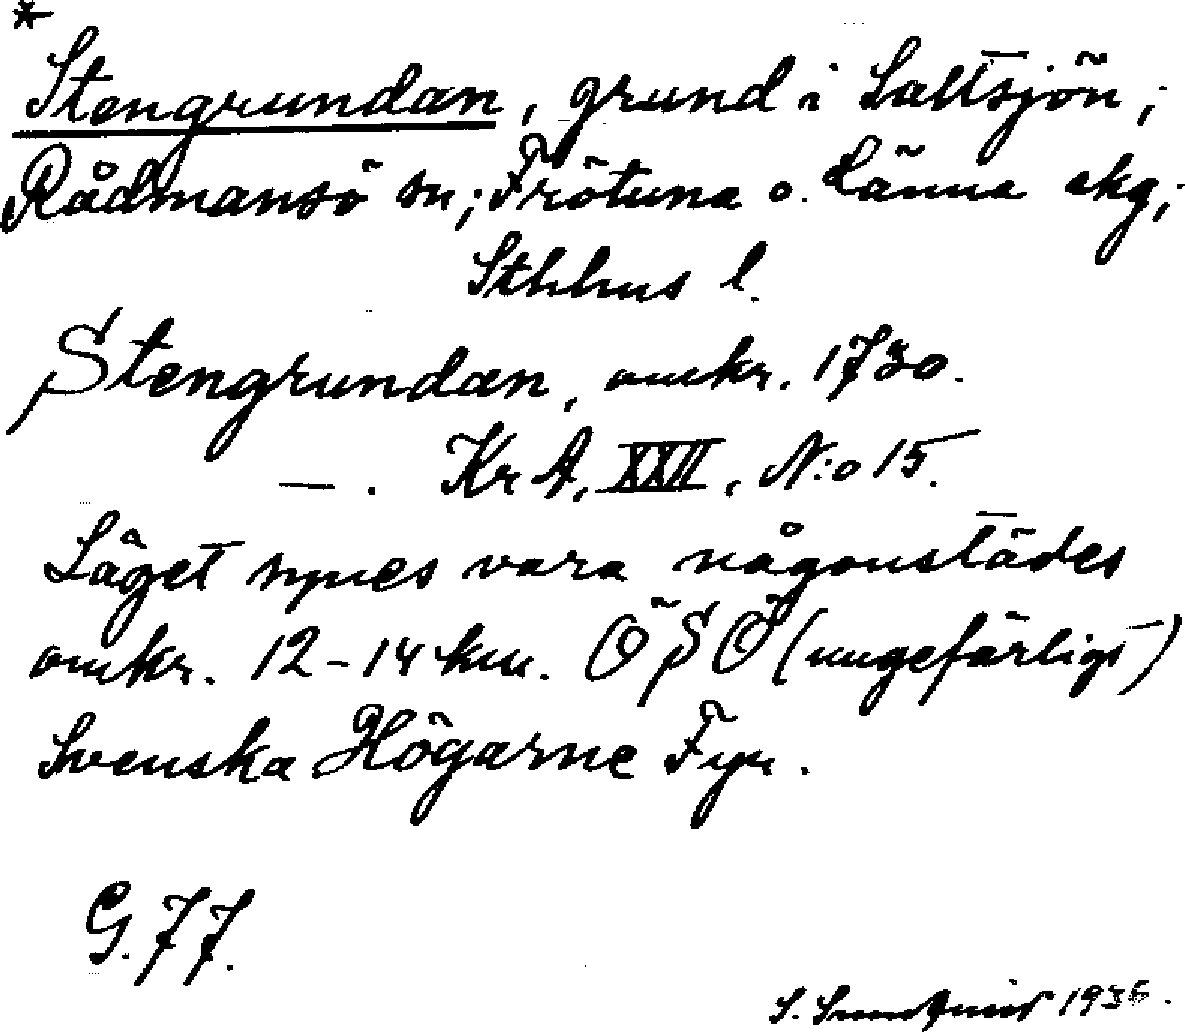 *
Stengrundan, grund i Saltsjön;
Rådmansö sn; Frötuna o. Länna skg;
Sthlms l.
Stengrundan, omkr. 1730.
—. KrA, XXII, N:o 15.
Läget synes vara någonstädes
omkr. 12-14 km. ÖSÖ (ungefärligt)
Svenska Högarne Fyr.
G. 77.
S. Sundqvist 1936.